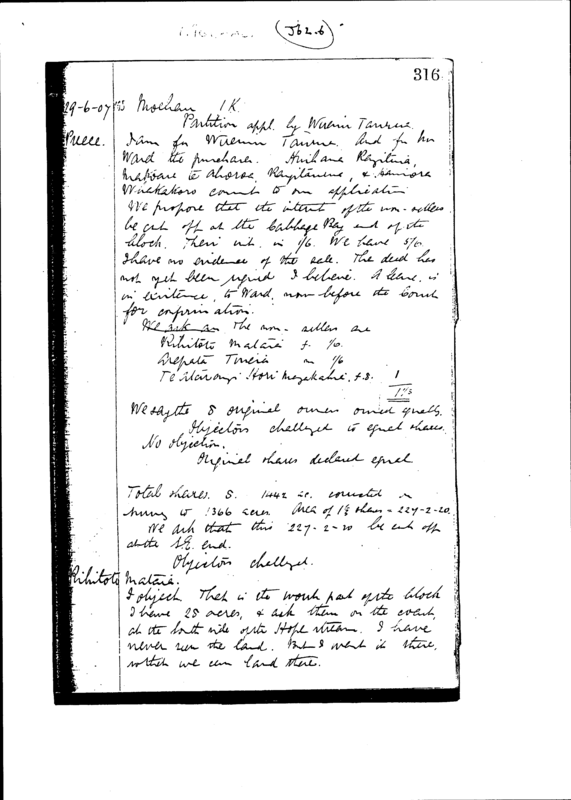 J62.6
316
29-6-07 Moehau 1K
Partition appl. by Wiremu Taurua.
Preece. I am for Wiremu Taurua And for Mr
Ward the purchaser.
consent to our application
We propose that the interest of the non-sellers
be cut off at the Cabbage Bay end of the
block. Their int. is 1/6. We have 5/6.
I have no evidence of the sale. The deed has
not yet been signed I believe. A lease is
in existence, to Ward, now before the Court
for confirmation.
We ask an The non-sellers are
Rihitoto Mataia f. 1/6.
m 1/6
Te f.a. 1
1 1/3
We say the 8 original owners owned equally.
Objectors challenged to equal shares.
No objection.
Original shares declared equal
Total shares. 8. 1442 ac. corrected in
survey to 1366 acres Area of 1⅓ shares = 227-2-20.
We ask that this 227-2-20 be cut off
at the S.E. end.
Objectors challenged.
Rihitoto Mataia.
I object. That is the worst part of the block
I have 28 acres, & ask them on the coast,
at the south side of the Hope stream. I have
never seen the land. But I want it there,
so that we can land there.